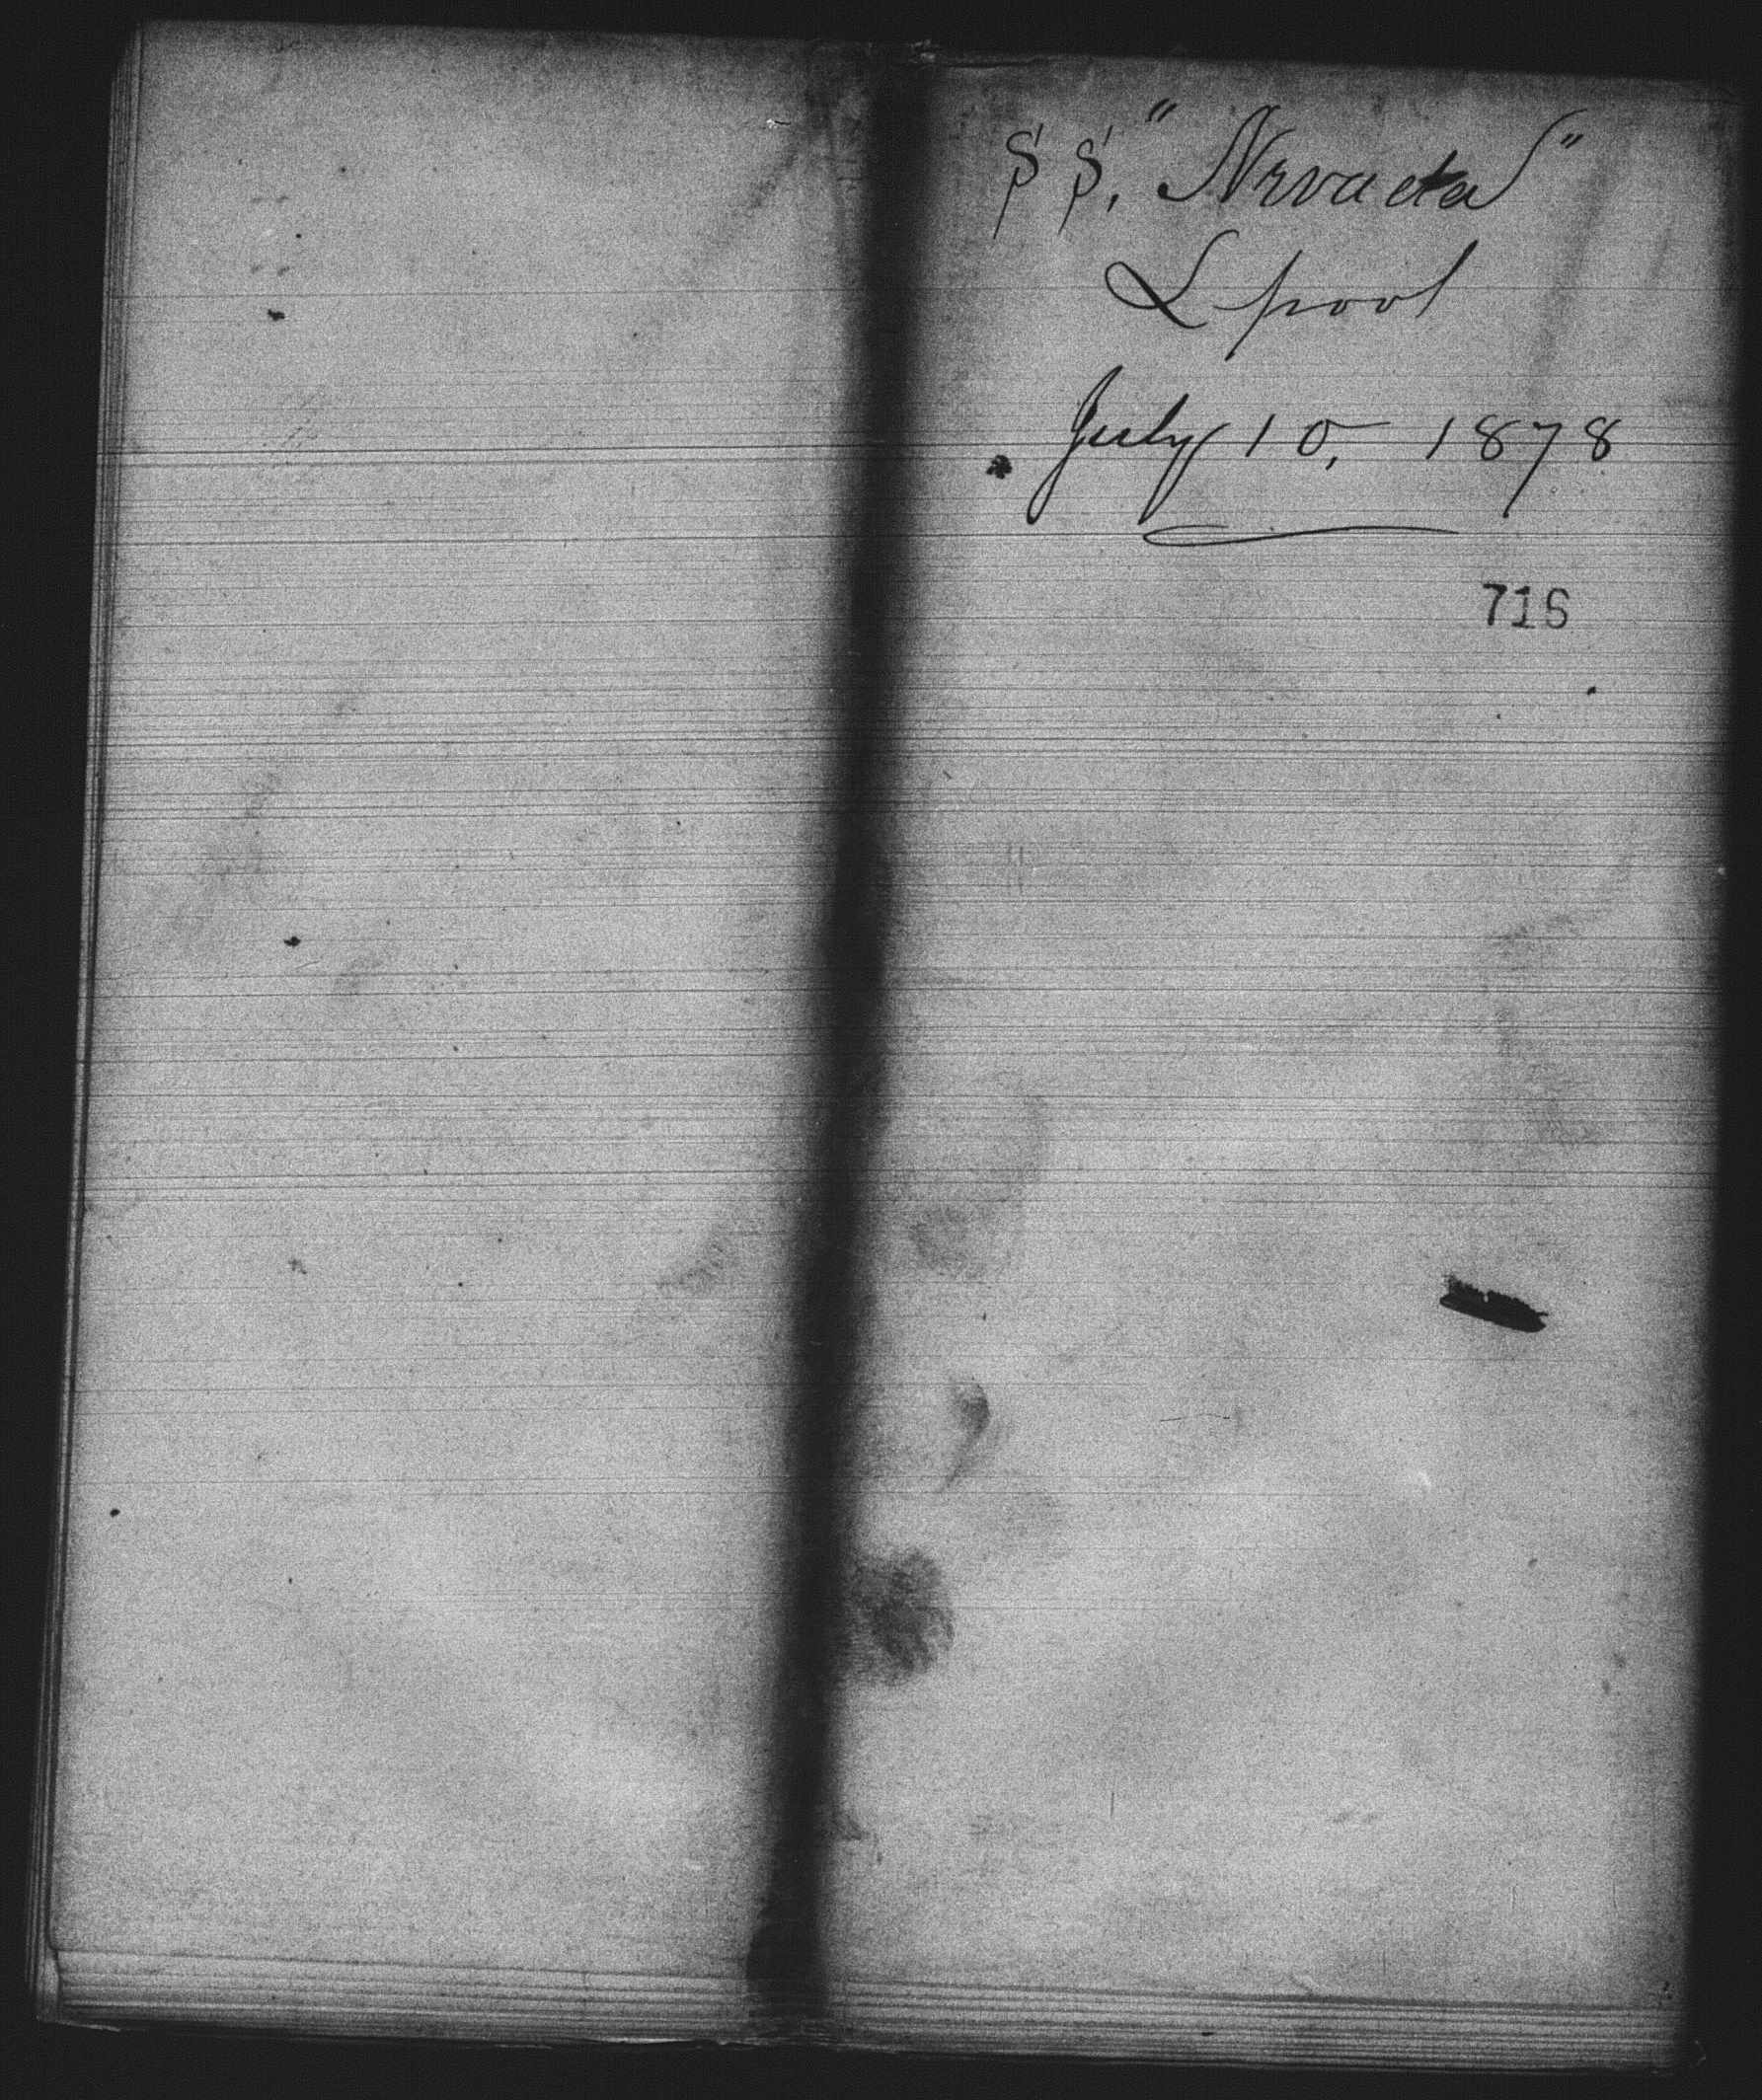 SS, "Nevada"
Lpool
July 10, 1878
716